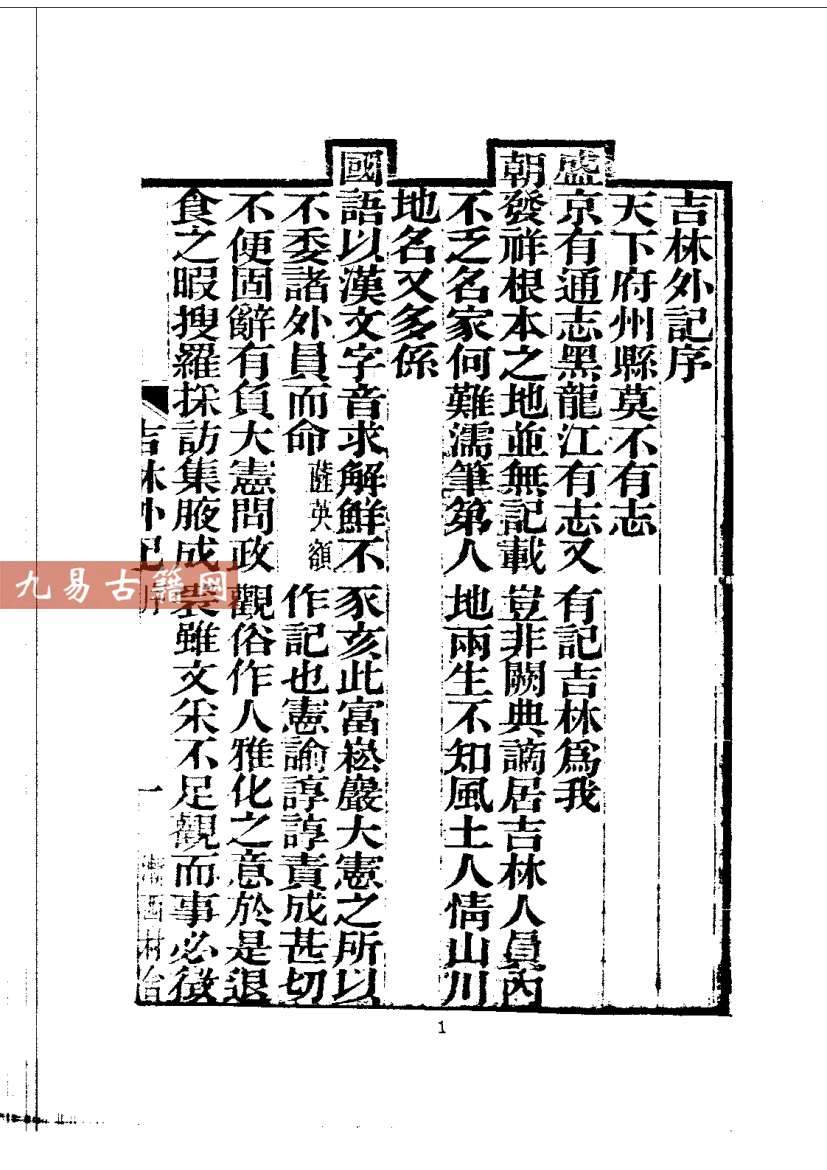 吉林外記序
天下府州縣莫不有志
盛京有通志黑龍江有志又有記吉林爲我
朝發祥根本之地並無記載豈非闕典謫居吉林人員內
不乏名家何難濡筆第人地兩生不知風土人情山川
地名又多係
國語以漢文字音求解鮮不豕亥此富崧巖大憲之所以
不委諸外員而命薩英額作記也憲諭諄諄責成甚切
不便固辭有負大憲問政觀俗作人雅化之意於是退
食之暇搜羅採訪集腋成裘雖文采不足觀而事必徵
吉林外記 序 一
九易古籍网
1